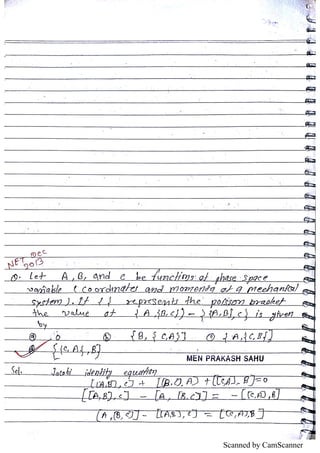 DEC
NET 2013
Q. Let A, B, and C be functions of phase space
variable (coordinates and momenta of a mechanical
system). If { } represents the poisson bracket
the value of {A,{B,C}} - {{A,B},C} is given
by
(a) 0 (b) {B,{C,A}} (c) {A,{C,B}}
(d) {{C,A},B}
MEN PRAKASH SAHU
Sol. Jacobi identity equation
[[A,B],C] + [[B,C],A] + [[C,A],B]=0
[[A,B],C] - [A,[B,C]] = -[[C,A],B]
[A,[B,C]] - [[A,B],C] = [[C,A],B]
Scanned by CamScanner